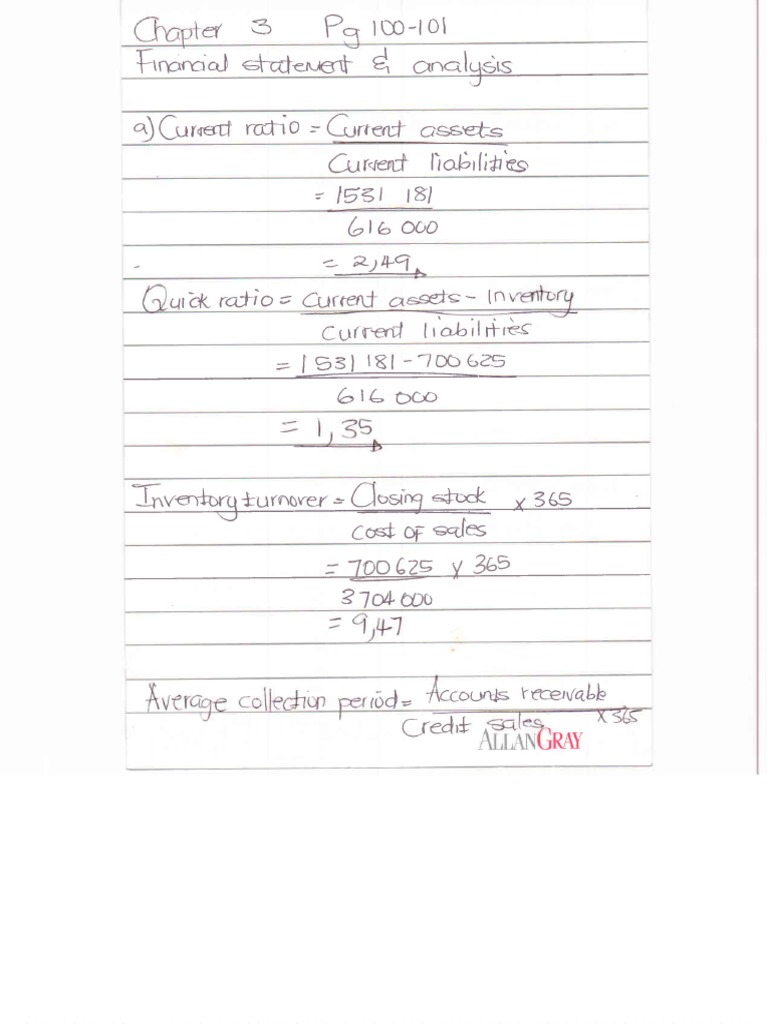 Chapter 3 Pg 100-101
Financial statement & analysis
a) Current ratio = Current assets
Current liabilities
= 1531 181
616 000
= 2,49
Quick ratio = Current assets - Inventory
Current liabilities
= 1531 181 - 700 625
616 000
= 1,35
Inventory turnover = Closing stock x 365
Cost of sales
= 700 625 x 365
3 704 000
= 9,47
Average collection period = Accounts receivable
Credit sales x 365
ALLANGRAY